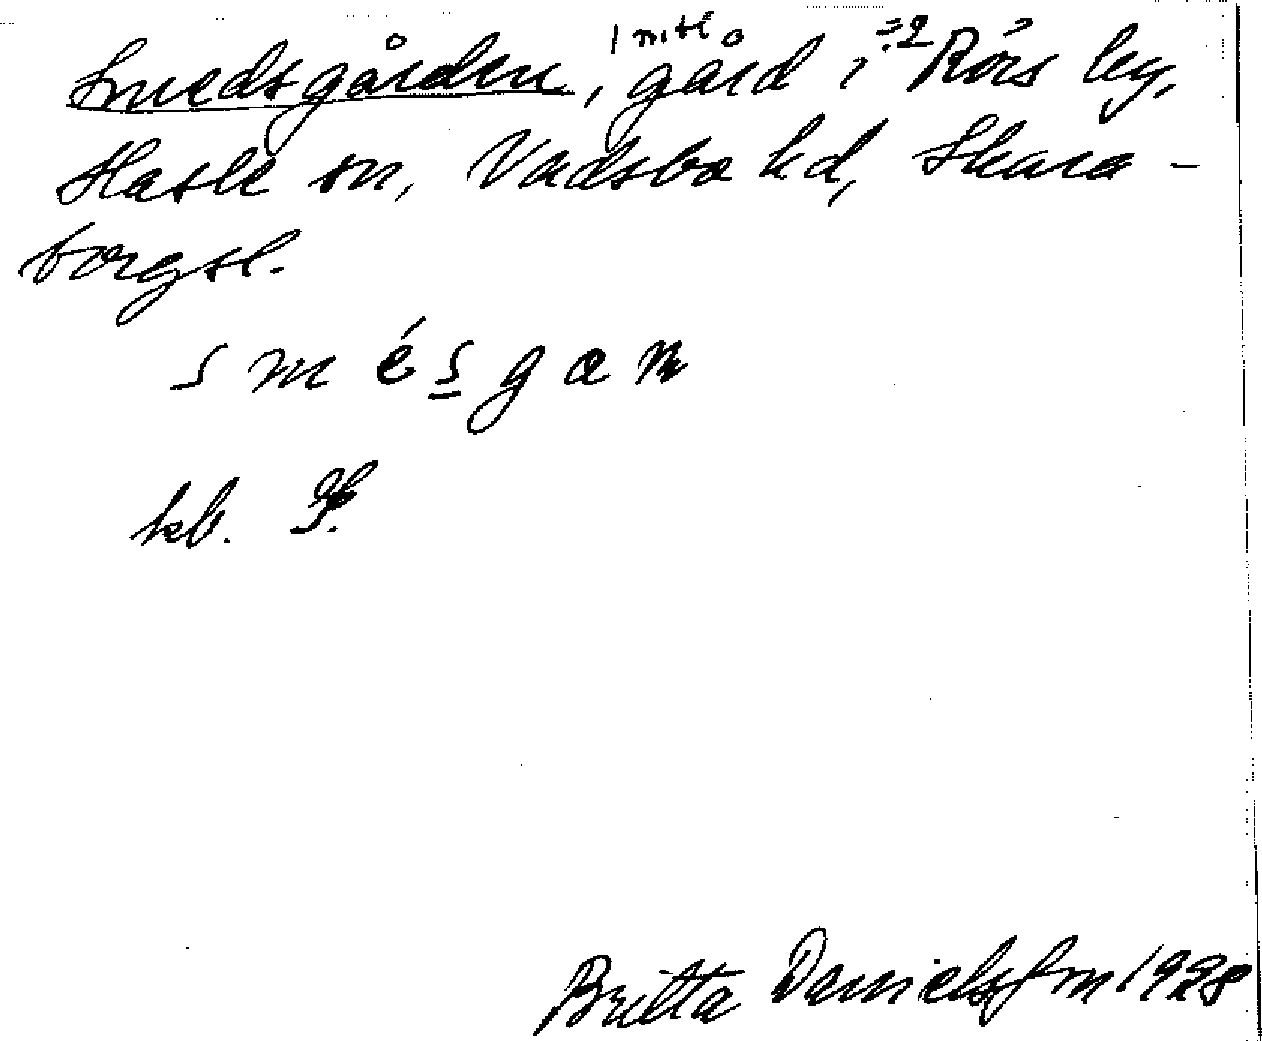 1 mtl
Smedsgården, gård i Rörs by,
Hasle sn, Vadsbo hd, Skara-
borgsl.
s m é s g a n
kb.
Britta Danielsson 1928